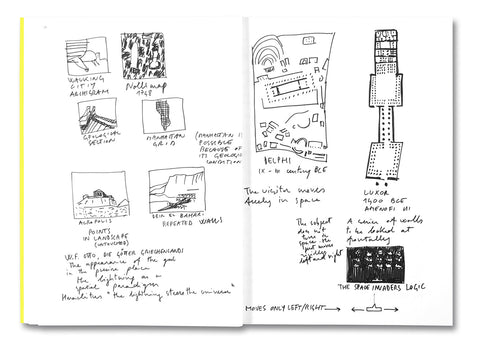 WALKING
CITY
ARCHIGRAM
Nolli map
1748
GEOLOGICAL
SECTION
MANHATTAN
GRID
(MANHATTAN IS
POSSIBLE
BECAUSE OF
ITS GEOLOGIC
CONDITION
ACROPOLIS
POINTS
IN LANDSCAPE
(UNTOUCHED)
DEIR EL BAHARI
REPEATED WALLS
W.F. OTTO, DIE GÖTTER GRIECHENLANDS
the appearance of the god
in the precise place
the lightning as a
spatial paradigm
Heraclitus "the lightning steers the universe"
DELPHI
IX - III century BCE
The visitor moves
freely in space
The subject
does not
turn in
space. the
moves
left and right
LUXOR
1400 BCE
AMENOFI III
A series of walls
to be looked at
frontally
THE SPACE INVADERS LOGIC
MOVES ONLY LEFT/RIGHT